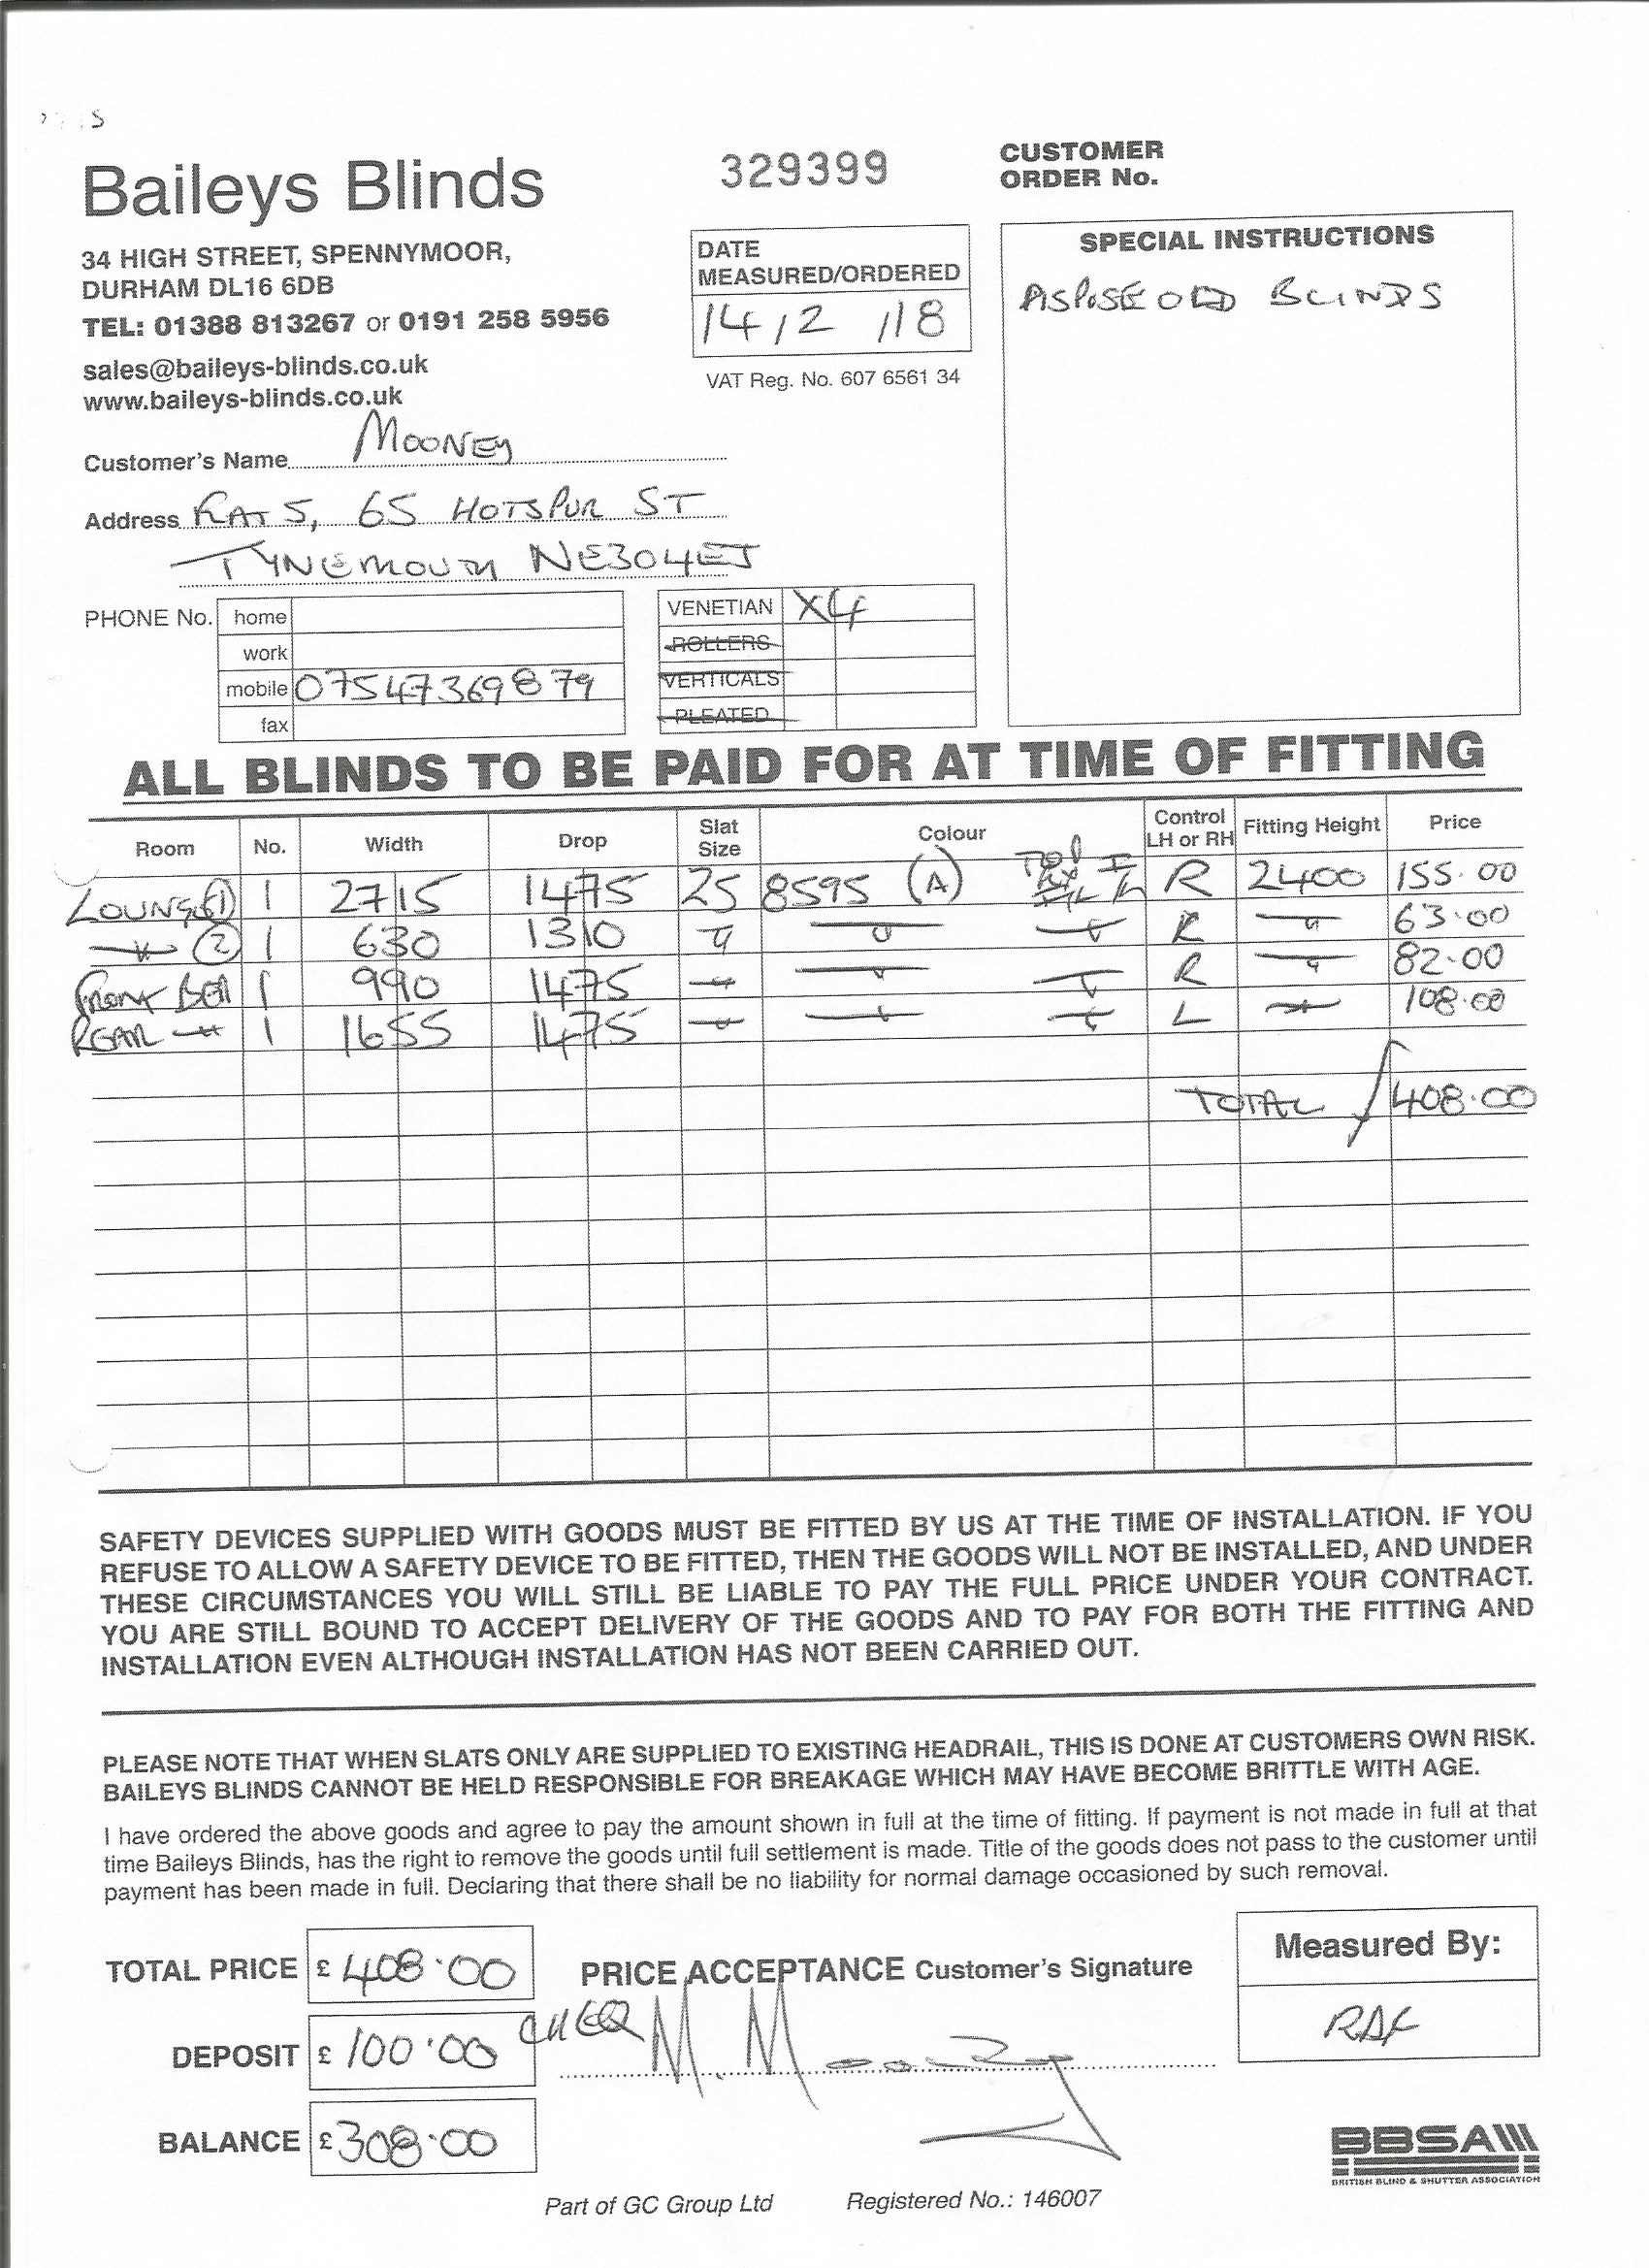 Baileys Blinds
329399
CUSTOMER
ORDER No.
34 HIGH STREET, SPENNYMOOR,
DURHAM DL16 6DB
TEL: 01388 813267 or 0191 258 5956
sales@baileys-blinds.co.uk
www.baileys-blinds.co.uk
DATE
MEASURED/ORDERED
14/2/18
VAT Reg. No. 607 6561 34
SPECIAL INSTRUCTIONS
OLD BLINDS
Customer's Name MOONEY
Address FLAT 5, 65 HOTSPUR ST
TYNEMOUTH NE30 4EJ
PHONE No. home
work
mobile 07547369879
fax
VENETIAN X4
ROLLERS
VERTICALS
PLEATED
ALL BLINDS TO BE PAID FOR AT TIME OF FITTING
Room No. Width Drop Slat Size Colour Control LH or RH Fitting Height Price
LOUNGE (1) 1 2715 1475 25 8595 (A) R 2400 155.00
(2) 1 630 1310 R 63.00
FRONT BED 1 990 1475 R 82.00
REAR 1 1655 1475 L 108.00
TOTAL 408.00
SAFETY DEVICES SUPPLIED WITH GOODS MUST BE FITTED BY US AT THE TIME OF INSTALLATION. IF YOU
REFUSE TO ALLOW A SAFETY DEVICE TO BE FITTED, THEN THE GOODS WILL NOT BE INSTALLED, AND UNDER
THESE CIRCUMSTANCES YOU WILL STILL BE LIABLE TO PAY THE FULL PRICE UNDER YOUR CONTRACT.
YOU ARE STILL BOUND TO ACCEPT DELIVERY OF THE GOODS AND TO PAY FOR BOTH THE FITTING AND
INSTALLATION EVEN ALTHOUGH INSTALLATION HAS NOT BEEN CARRIED OUT.
PLEASE NOTE THAT WHEN SLATS ONLY ARE SUPPLIED TO EXISTING HEADRAIL, THIS IS DONE AT CUSTOMERS OWN RISK.
BAILEYS BLINDS CANNOT BE HELD RESPONSIBLE FOR BREAKAGE WHICH MAY HAVE BECOME BRITTLE WITH AGE.
I have ordered the above goods and agree to pay the amount shown in full at the time of fitting. If payment is not made in full at that
time Baileys Blinds, has the right to remove the goods until full settlement is made. Title of the goods does not pass to the customer until
payment has been made in full. Declaring that there shall be no liability for normal damage occasioned by such removal.
TOTAL PRICE £ 408.00
PRICE ACCEPTANCE Customer's Signature
Measured By:
DEPOSIT £ 100.00 CHEQ
M. Mooney
BALANCE £ 308.00
BBSA
BRITISH BLIND & SHUTTER ASSOCIATION
Part of GC Group Ltd
Registered No.: 146007